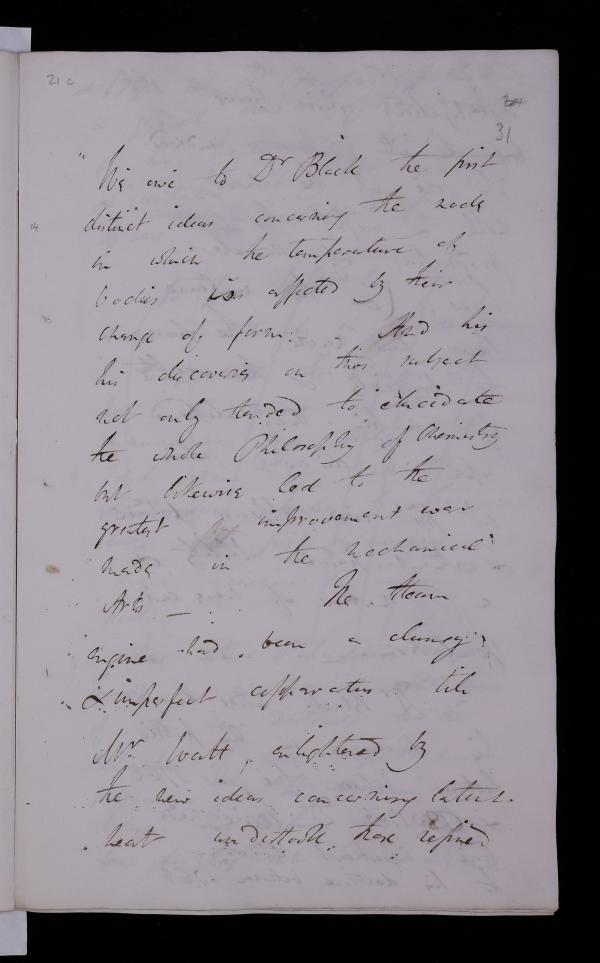 21 c
31
"We owe to Dr Black the first
distinct ideas concerning the mode
in which the temperature of
bodies is affected by their
change of form: - And his
his discoveries on this subject
not only tended to elucidate
the whole Philosophy of Chemistry
but likewise led to the
greatest improvement ever
made in the mechanical
Arts —. The Steam
engine had been a clumsy
& imperfect apparatus till
Mr. Watt, enlightened by
the new ideas concerning latent
heat undertook those refined